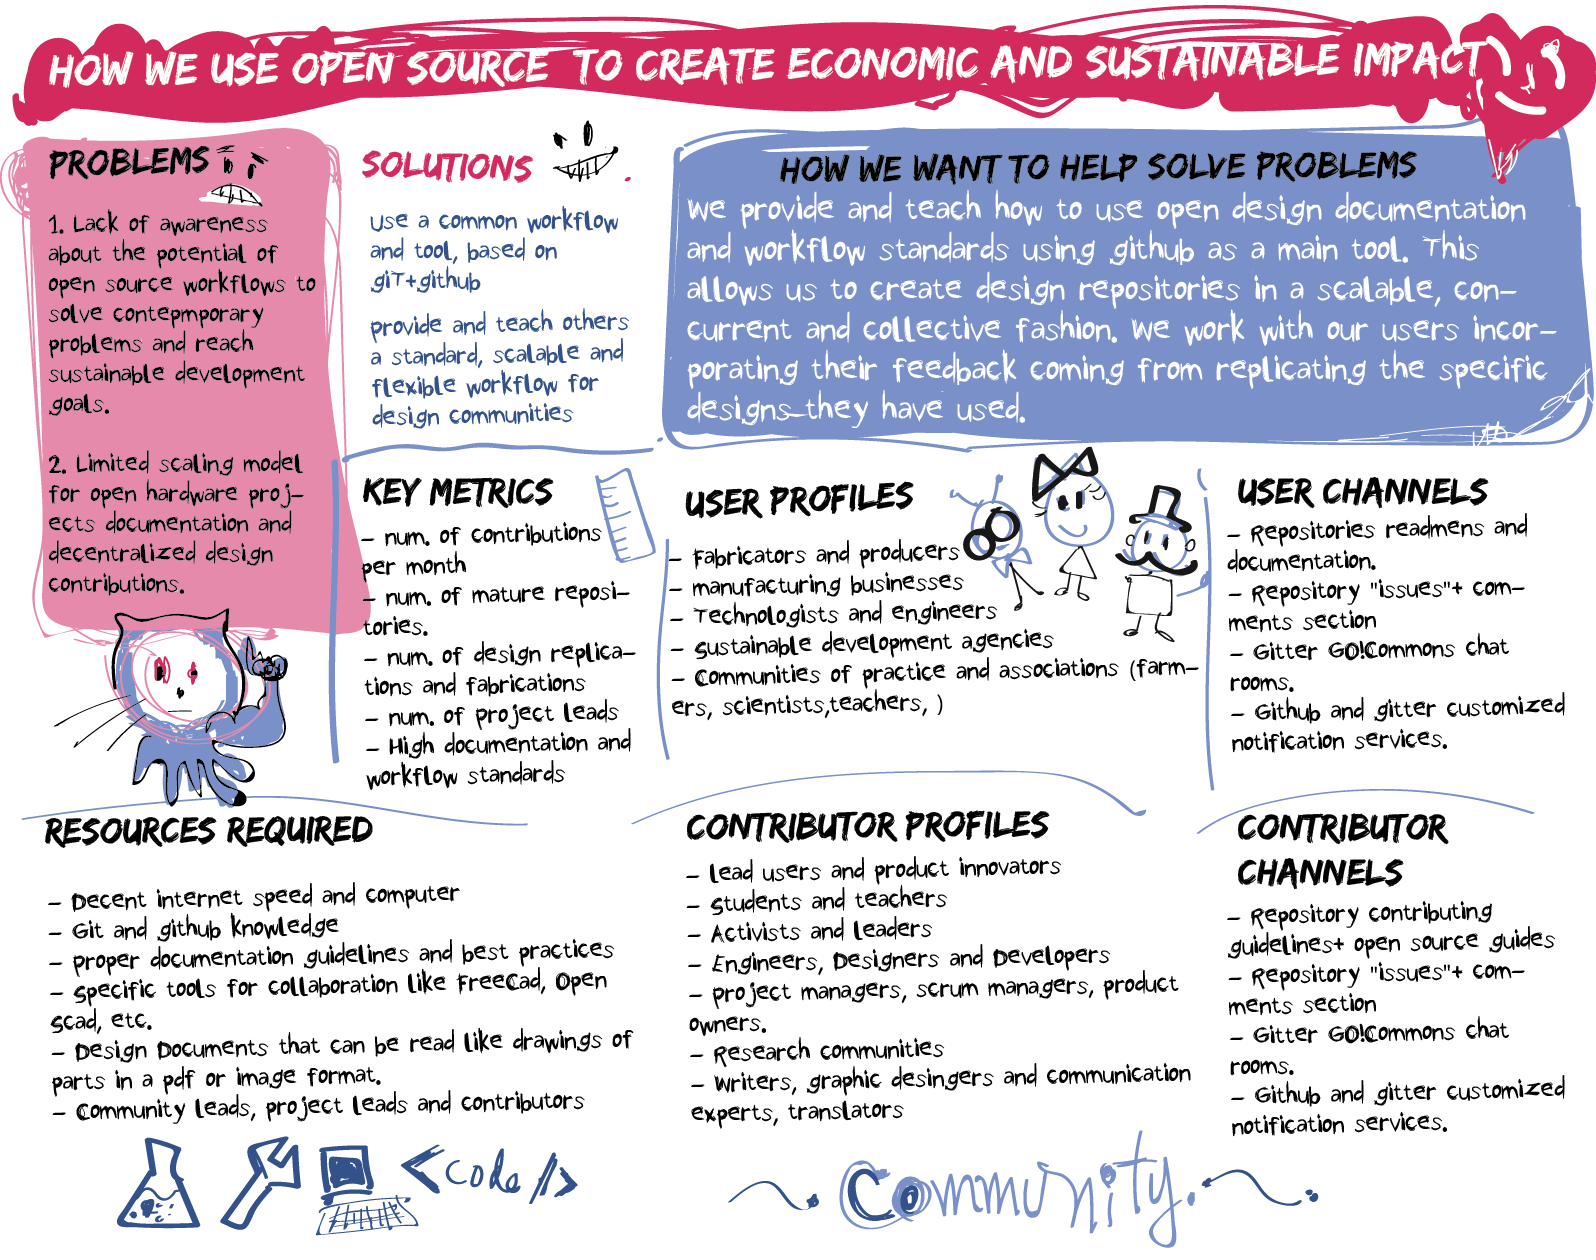 HOW WE USE OPEN SOURCE TO CREATE ECONOMIC AND SUSTAINABLE IMPACT
PROBLEMS
1. Lack of awareness
about the potential of
open source workflows to
solve contepmporary
problems and reach
sustainable development
goals.
2. Limited scaling model
for open hardware proj-
ects documentation and
decentralized design
contributions.
SOLUTIONS
use a common workflow
and tool, based on
giT+github
provide and teach others
a standard, scalable and
flexible workflow for
design communities
HOW WE WANT TO HELP SOLVE PROBLEMS
We provide and teach how to use open design documentation
and workflow standards using github as a main tool. This
allows us to create design repositories in a scalable, con-
current and collective fashion. We work with our users incor-
porating their feedback coming from replicating the specific
designs they have used.
KEY METRICS
- num. of contributions
per month
- num. of mature reposi-
tories.
- num. of design replica-
tions and fabrications
- num. of project leads
- High documentation and
workflow standards
USER PROFILES
- Fabricators and producers
- manufacturing businesses
- Technologists and engineers
- Sustainable development agencies
- Communities of practice and associations (farm-
ers, scientists,teachers, )
USER CHANNELS
- Repositories readmens and
documentation.
- Repository "issues"+ com-
ments section
- Gitter GO!Commons chat
rooms.
- Github and gitter customized
notification services.
RESOURCES REQUIRED
- Decent internet speed and computer
- Git and github knowledge
- proper documentation guidelines and best practices
- Specific tools for collaboration like FreeCad, Open
Scad, etc.
- Design Documents that can be read like drawings of
parts in a pdf or image format.
- Community leads, project leads and contributors
<code/>
CONTRIBUTOR PROFILES
- Lead users and product innovators
- Students and teachers
- Activists and leaders
- Engineers, Designers and Developers
- project managers, scrum managers, product
owners.
- Research communities
- Writers, graphic desingers and communication
experts, translators
Community.
CONTRIBUTOR
CHANNELS
- Repository contributing
guidelines+ open source guides
- Repository "issues"+ com-
ments section
- Gitter GO!Commons chat
rooms.
- Github and gitter customized
notification services.